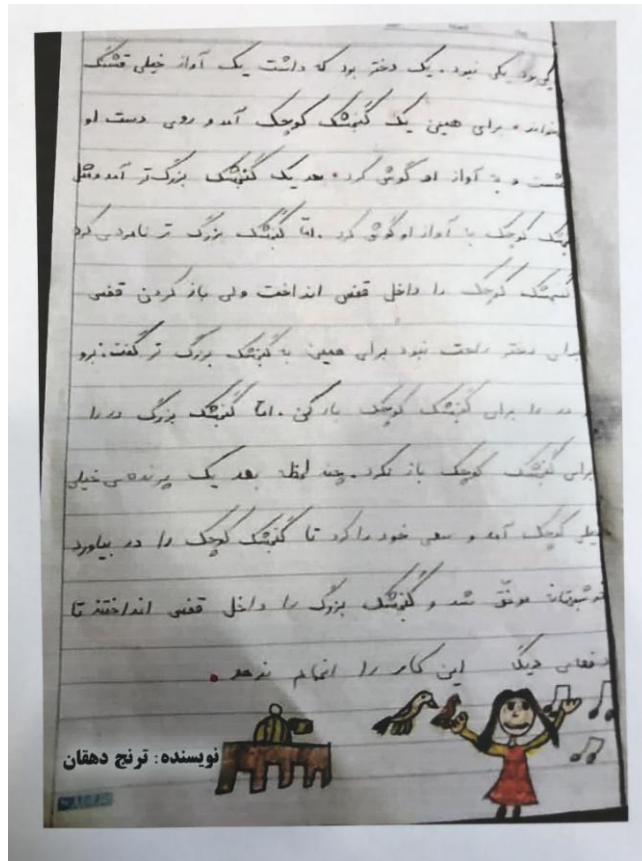 یکی بود یکی نبود. یک دختر بود که داشت یک آواز خیلی قشنگ
میخواند. برای همین یک گنجشک کوچک آمد و روی دست او
نشست و به آواز او گوش کرد. بعد یک گنجشک بزرگ‌تر آمد و مثل
گنجشک کوچک به آواز او گوش کرد. امّا گنجشک بزرگ تر نامردی کرد
گنجشک کوچک را داخل قفس انداخت ولی باز کردن قفس
برای دختر راحت نبود برای همین به گنجشک بزرگ تر گفت: برو
در را برای گنجشک کوچک باز کن. امّا گنجشک بزرگ در را
برای گنجشک کوچک باز نکرد. چند لحظه بعد یک پرنده‌ی خیلی
خیلی کوچک آمد و سعی خود را کرد تا گنجشک کوچک را در بیاورد
خوشبختانه موفّق شد و گنجشک بزرگ را داخل قفس انداختند تا
دفعه‌ی دیگه این کار را انجام ندهد.
نویسنده: ترنج دهقان